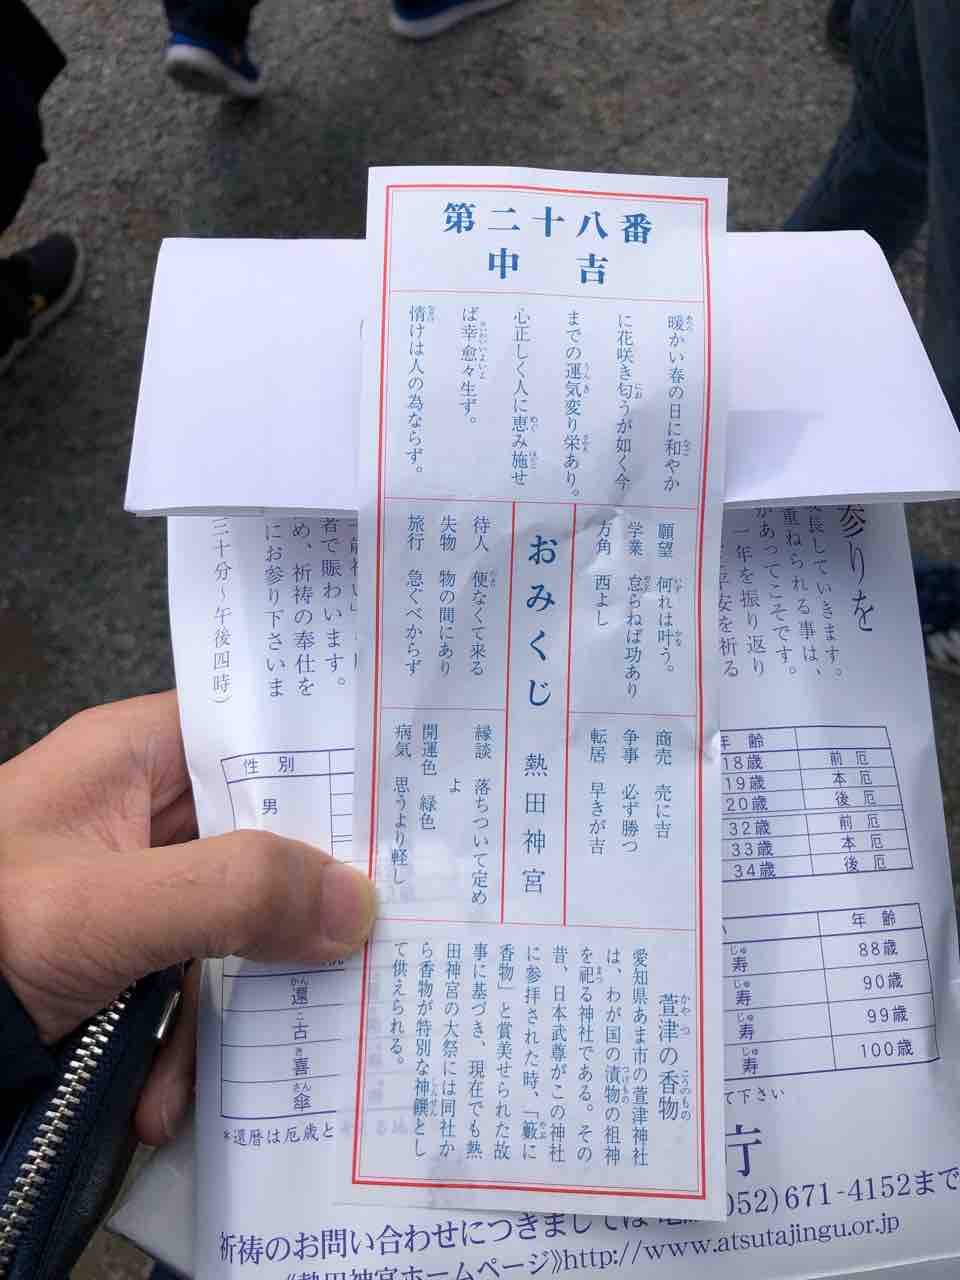 第二十八番
中吉
暖かい春の日に和やか
に花咲き匂うが如く今
までの運気変り栄あり。
心正しく人に恵み施せ
ば幸愈々生ず。
情けは人の為ならず。
願望 何れは叶う。
学業 怠らねば功あり
方角 西よし
商売 売に吉
争事 必ず勝つ
転居 早きが吉
おみくじ 熱田神宮
待人 便なくて来る
失物 物の間にあり
旅行 急ぐべからず
縁談 落ちついて定め
よ
開運色 緑色
病気 思うより軽し
萱津の香物
愛知県あま市の萱津神社
は、わが国の漬物の祖神
を祀る神社である。その
昔、日本武尊がこの神社
に参拝された時、「藪に
香物」と賞美せられた故
事に基づき、現在でも熱
田神宮の大祭には同社か
ら香物が特別な神饌とし
て供えられる。
参りを
成長していきます。
重ねられる事は、
があってこそです。
一年を振り返り
平安を祈る
者で賑わいます。
め、祈祷の奉仕を
にお参り下さいま
三十分〜午後四時)
性別
男
年齢
18歳 前厄
19歳 本厄
20歳 後厄
32歳 前厄
33歳 本厄
34歳 後厄
年齢
還
古
喜
傘
寿 88歳
寿 90歳
寿 99歳
寿 100歳
*還暦は厄歳と
て下さい
庁
祈祷のお問い合わせにつきましては
052)671-4152まで
《熱田神宮ホームページ》http://www.atsutajingu.or.jp